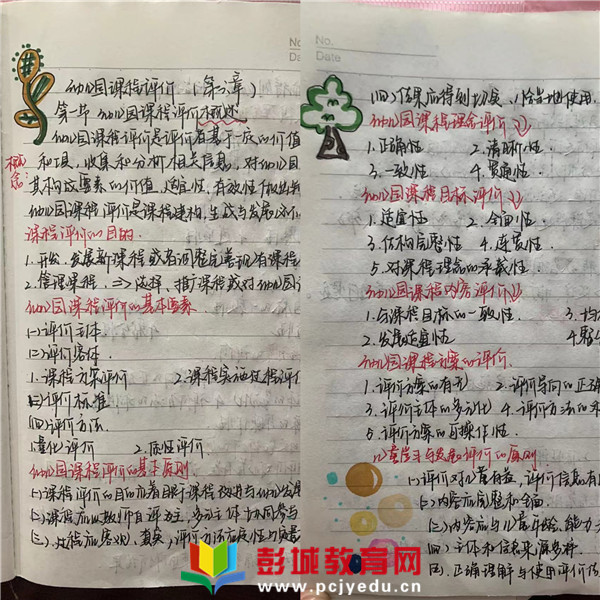 幼儿园课程评价（第六章）
第一节 幼儿园课程评价概述
概念：
幼儿园课程评价是评价者基于一定的价值
和工具，收集和分析相关信息，对幼儿园
其构成要素的价值、适宜性、有效性做出
幼儿园课程评价是课程建构、生成与发展
课程评价的目的
1.开发、发展新课程或者调整完善现有课程
2.管理课程，=>选择、推广课程或对幼儿园
幼儿园课程评价的基本要素
(一)评价主体
(二)评价客体
1.课程方案评价 2.课程实施过程评价
(三)评价标准
(四)评价方法
1.量化评价 2.质性评价
幼儿园课程评价的基本原则
(一)课程评价的目的
(二)课程应以教师自评为主，多方主体共同参与
(三)过程应客观、真实，评价方法
No.
Date
(四)结果应得到切实、恰当地使用.
幼儿园课程理念评价
1.正确性 2.清晰性
3.一致性 4.贯通性
幼儿园课程目标评价
1.适宜性 2.全面性
3.结构完整性 4.连贯性
5.对课程理念的承载性
幼儿园课程内容评价
1.与课程目标的一致性 3.均
2.发展适宜性
幼儿园课程方案的评价
1.评价方案的有无 2.评价导向的正确
3.评价主体的多元化 4.评价方法的
5.评价方案的可操作性
儿童学习与发展评价的原则
(一)评价对儿童有益，评价信息
(二)内容应完整和全面
(三)内容应与儿童年龄、能力
(四)主体和信息来源多样
(五)正确理解与使用评价
彭城教育网
www.pcjyedu.cn